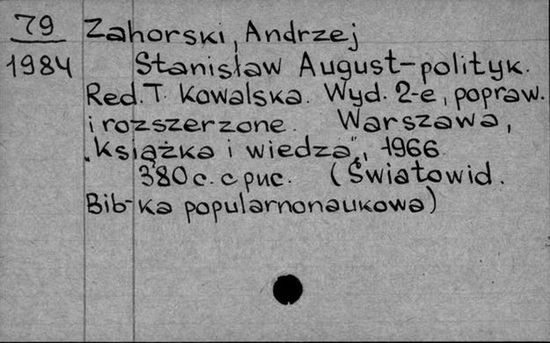 79 Zahorski, Andrzej
1984 Stanisław August-polityk.
Red. T. Kowalska. Wyd. 2-e, popraw.
i rozszerzone. Warszawa,
„Książka i wiedza", 1966.
380 c. с рис. (Światowid.
Bib-ka popularnonaukowa)